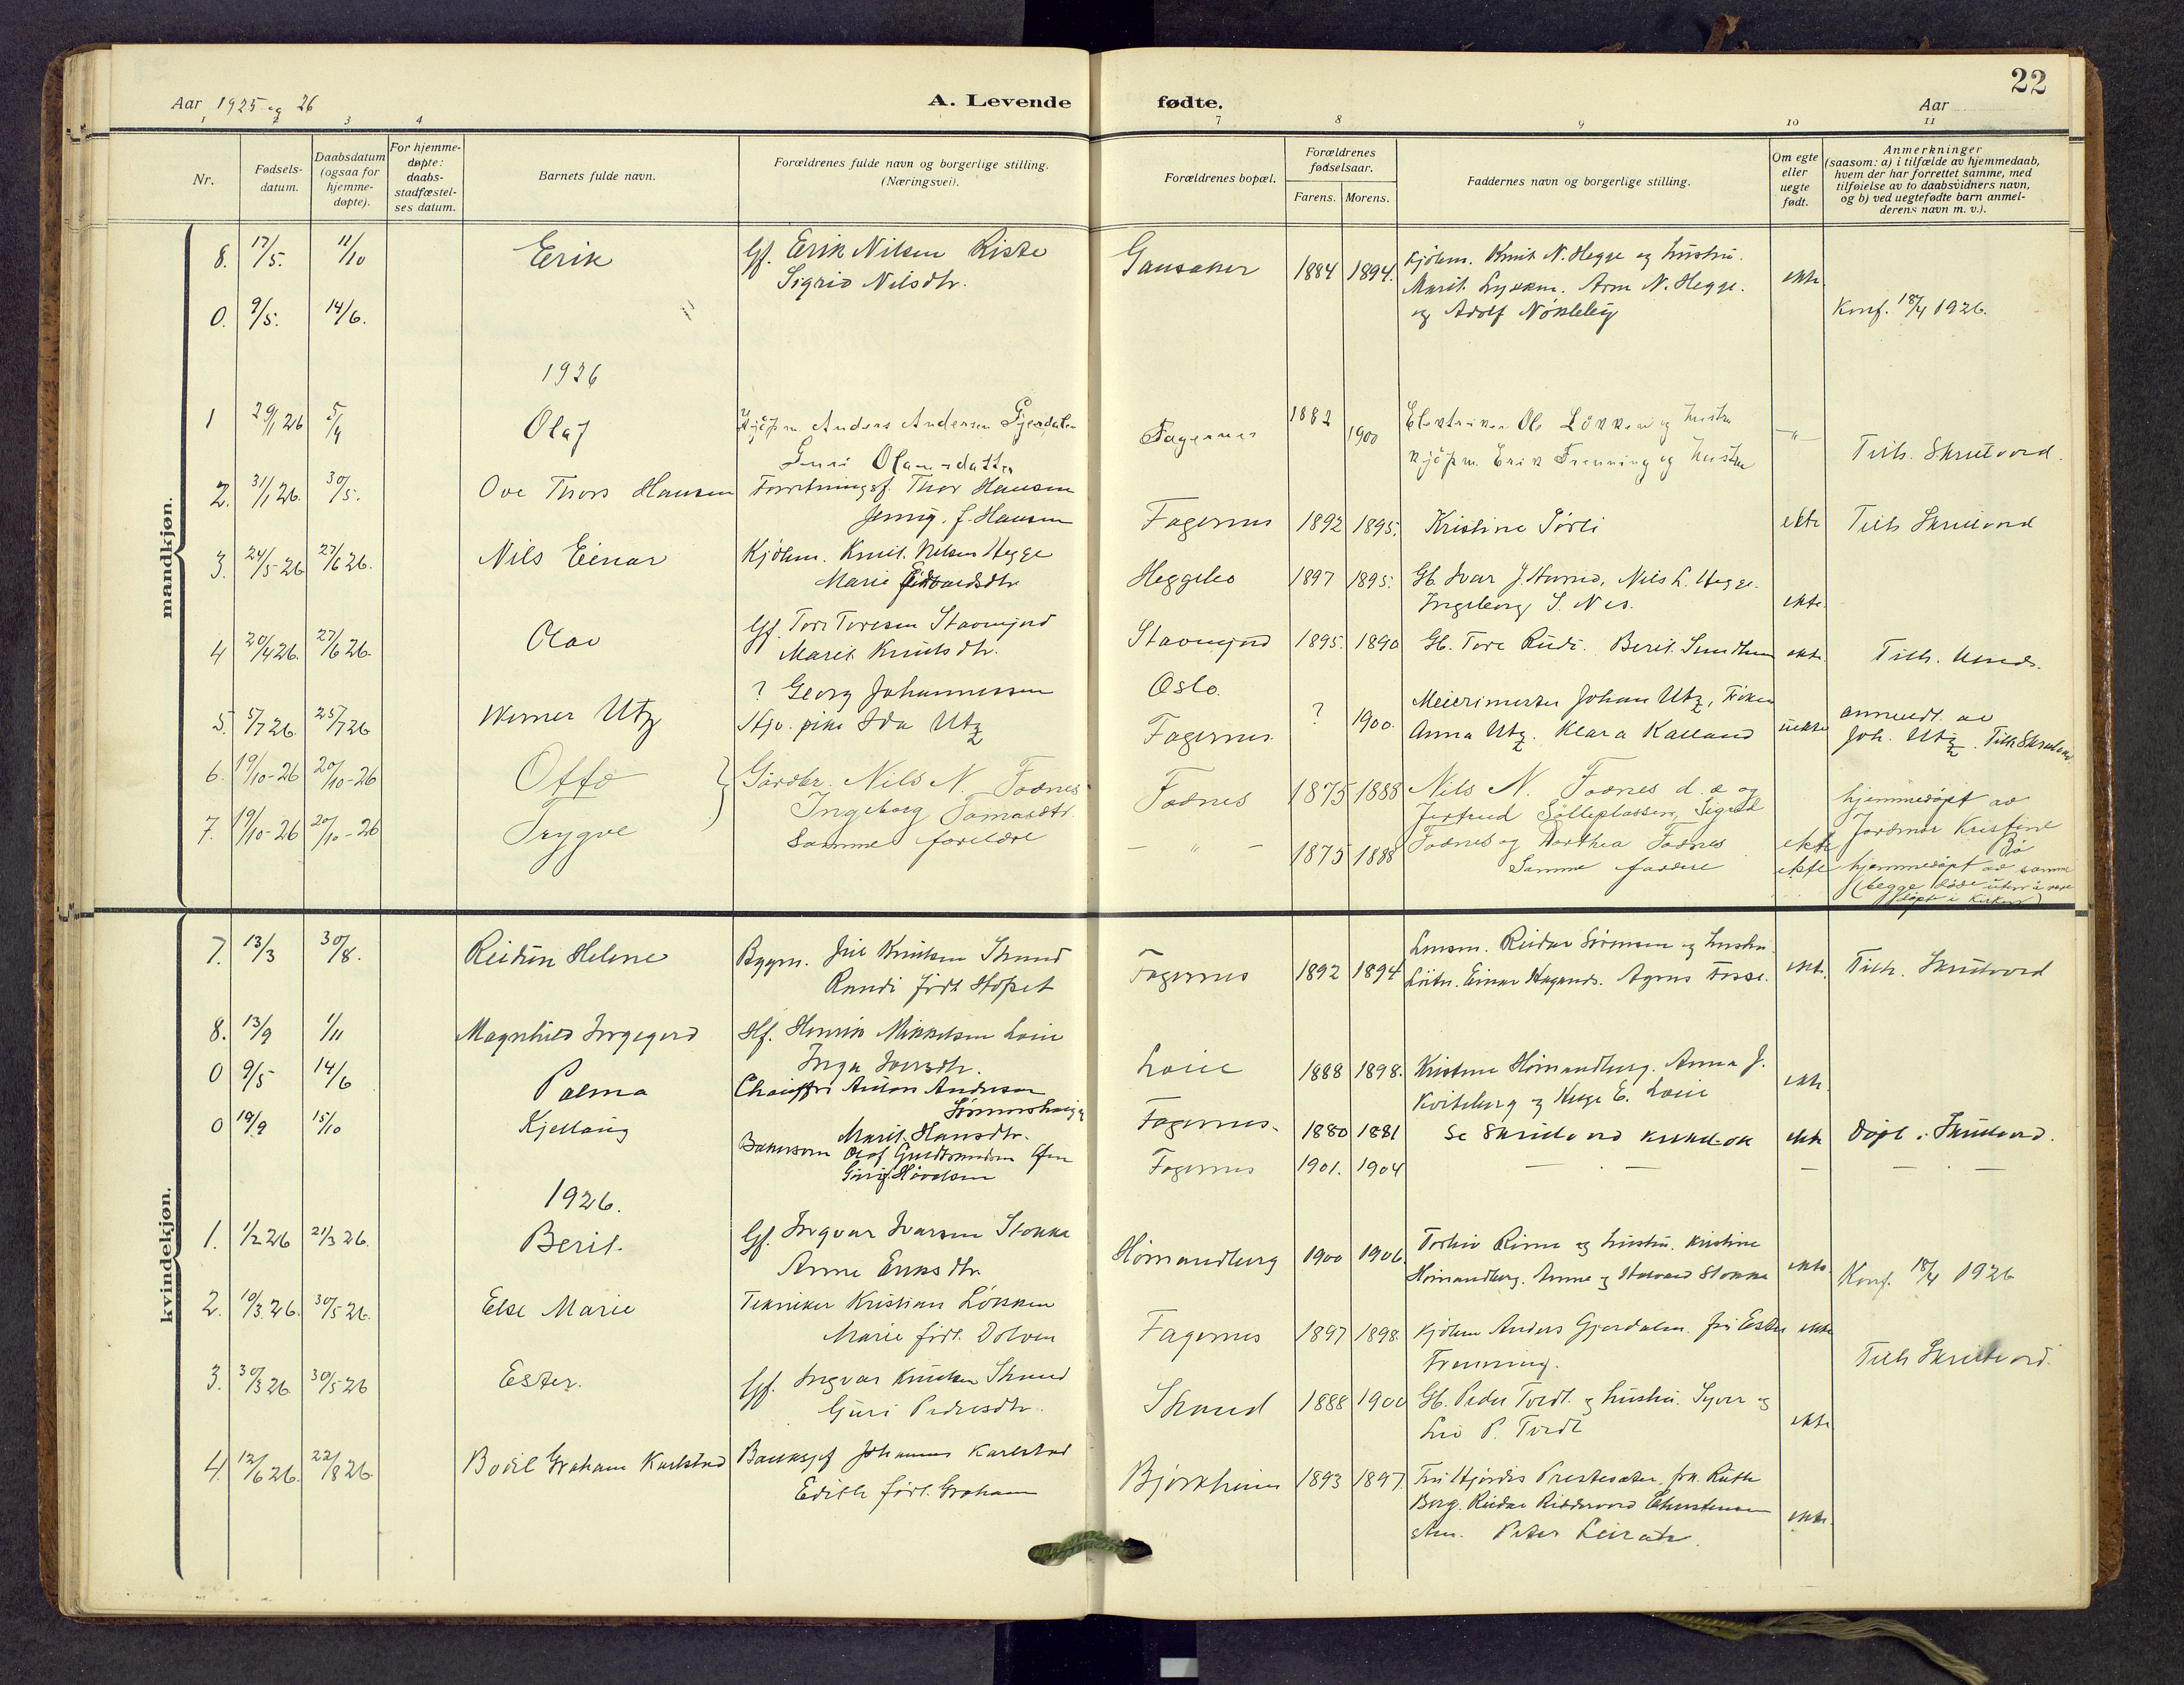 22
Aar 1925 og 26
A. Levende fødte.
Aar
1 2 3 4 7 8 9 10 11
Nr.
Fødsels-
datum.
Daabsdatum
(ogsaa for
hjemme-
døpte).
For hjemme-
døpte:
daabs-
stadfæstel-
ses datum.
Barnets fulde navn.
Forældrenes fulde navn og borgerlige stilling.
(Næringsvei).
Forældrenes bopæl.
Forældrenes
fødselsaar.
Farens. Morens.
Faddernes navn og borgerlige stilling.
Om egte
eller
uegte
født.
Anmerkninger
(saasom: a) i tilfælde av hjemmedaab,
hvem der har forrettet samme, med
tilføielse av to daabsvidners navn,
og b) ved uegtefødte barn anmel-
derens navn m. v.).
mandkjøn.
8. 17/5. 11/10 Erik Gf. Erik Nilsen Riste
Sigrid Nilsdtr.
1884 1894. Kjøbm. Knut N. Hegge og hustru.
Marit Arne N. Hegge.
og Adolf Nökleby
ekte.
0. 9/5. 14/6.
Konf. 18/4 1926.
1926
1 29/1 26 5/4 Olaf Kjöpm. Anders Andersen Gjerdalen
Guri Olavsdatter
Fagernes 1882 1900 Elektriker Ole Lökken og hustru
kjöpm. Erik Frenning og hustru
-"- Tilh. Skrutvord.
2. 31/1 26. 30/5. Ove Thors Hansen Forretningsf. Thor Hansen
Jenny f. Hansen
Fagernes 1892 1895. Kristine Sørli ekte Tilh Skrutvord
3. 24/5-26 27/6 26. Nils Einar Kjöbm. Knut Nilsen Hegge
Marie Edvardsdtr
Heggebo 1897 1895. Gb. Ivar J. Nils L. Hegge.
Ingeborg S. Nes. ekte.
4 20/4 26. 27/6 26. Olav Gf. Tore Toresen Stavnsjord
Marit Knutsdtr.
Stavnsjord 1895. 1890 Gb. Tore Rudi. Berit Sundheim ekte. Tilh.
5. 5/7 26. 25/7 26 Werner Utz ? Georg Johannessen
Stjv. pike Ida Utz
Oslo.
Fagernes ? 1900. Meierimester Johan Utz, Fröken
Anna Utz. Klara Kalland uekte anmeldt av
Joh. Utz. Tilh Skrutvord
6. 19/10-26 20/10-26 Otto Gardbr. Nils N. Fodnes
Ingeborg Tomasdtr.
Fodnes 1875 1888 Nils N. Fodnes d. e og
Jertrud Sölleplassen, Sigrid
Fodnes og Dorthea Fodnes ekte
hjemmedöpt av
Jordmor Kristine
Bö
7. 19/10-26 20/10-26 Trygve Samme foreldre
- " - 1875 1888 Samme faddere ekte hjemmedöpt av samme
(begge döde uten å være
döpte i kirken)
kvindekjøn.
7. 13/3 30/8. Reidun Helene Bygm. Knutsen Strand
Randi født Hopset
Fagernes 1892 1894 Lensm. Reidar Sörensen og hustru
Löitn. Einar Haganes. Agnes Fosse. ekt. Tilh. Skrutvord
8. 13/9 1/11 Magnhild Ingegerd Hf. Henrik Mikkelsen Loeie
Inga Iversdtr.
Loeie 1888 1898. Kristine Hömandberg. Anna J.
Kviteberg og Hege E. Loeie ekte.
0 9/5 14/6 Palma Chauffør Anton Andersen
Marit Hansdtr.
Fagernes. 1880 1881 Se Skrutvord kirkebok ekte Döpt i Skrutvord.
0 19/9 15/10 Kjellaug Bakersven Olaf Gudbrandsen
Fagernes 1901. 1904 - - - - -
1926.
1. 1/2 26 21/3 26. Berit. Gf. Ingvar Ivarsen Stokke
Anne Eriksdtr.
Hömandberg 1900 1906. Torleiv Rime og hustru. Kristine
Hömandberg. Anne og Halvard Stokke ekte. Konf. 18/4 1926
2. 10/3. 26. 30/5 26. Else Marie Tekniker Kristian Løkken
Marie født Dolven
Fagernes 1897 1898. Kjöbm Anders Gjerdalen. fru Ester
Frenning. ekte
Tilh Skrutvord.
3. 30/3 26. 30/5 26 Ester. Gf. Ingvar Knutsen Strand
Guri Pedersdtr.
Strand 1888 1900 Gb. Peder Tveit og hustru. Syver og
Liv P. Tveit ekte
4. 12/6 26. 22/8 26. Bodil Graham Karlstad Banksjef Johannes Karlstad
Edith født Graham
Bjørkheim 1893 1897. Fru Hjørdis Prestesæter. frk. Ruth
Borg. Reidar Riddervord Christensen
Peter Leirat. ekte.